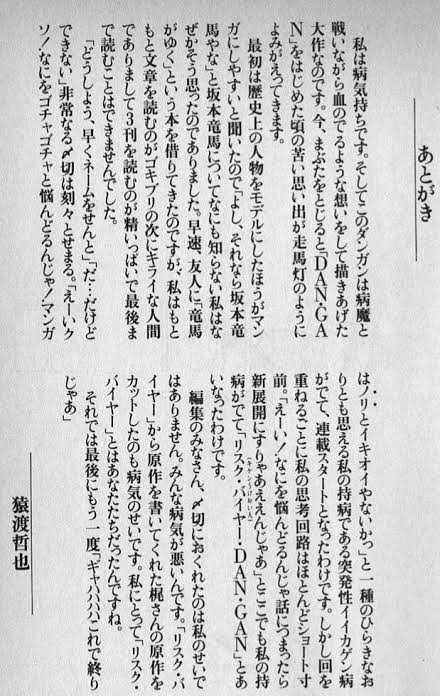 あとがき
私は病気持ちです。そしてこのダンガンは病魔と
戦いながら血のでるような想いをして描きあげた
大作なのです。今、まぶたをとじると「DAN・GA
N」をはじめた頃の苦い思い出が走馬灯のように
よみがえってきます。
最初は歴史上の人物をモデルにしたほうがマン
ガにしやすいと聞いたので「よし、それなら坂本竜
馬やな」と坂本竜馬についてなにも知らない私はな
ぜかそう思ったのでありました。早速、友人に「竜馬
がゆく」という本を借りてきたのですが、私はもと
もと文章を読むのがゴキブリの次にキライな人間
でありまして3刊を読むのが精いっぱいで最後ま
で読むことはできませんでした。
「どうしよう、早くネームをせんと」「だ…だけど
できない」非常なる〆切は刻々とせまる。「えーいク
ソ！なにをゴチャゴチャと悩んどるんじゃ！マンガ
はノリとイキオイやないかっ」と一種のひらきなお
りとも思える私の持病である突発性イイカゲン病
がでて、連載スタートとなったわけです。しかし回を
重ねるごとに私の思考回路はほとんどショート寸
前。「えーい！なにを悩んどるんじゃ話につまったら
新展開にすりゃあええんじゃあ」とここでも私の持
病がでて「リスク・バイヤー・DAN・GAN」とあ
いなったわけです。
編集のみなさん、〆切におくれたのは私のせいで
はありません。みんな病気が悪いんです。「リスク・バ
イヤー」から原作を書いてくれた梶さんの原作を
カットしたのも病気のせいです。私にとって「リスク・
バイヤー」とはあなたたちだったんですね。
それでは最後にもう一度「ギャハハハこれで終り
じゃあ」
猿渡哲也